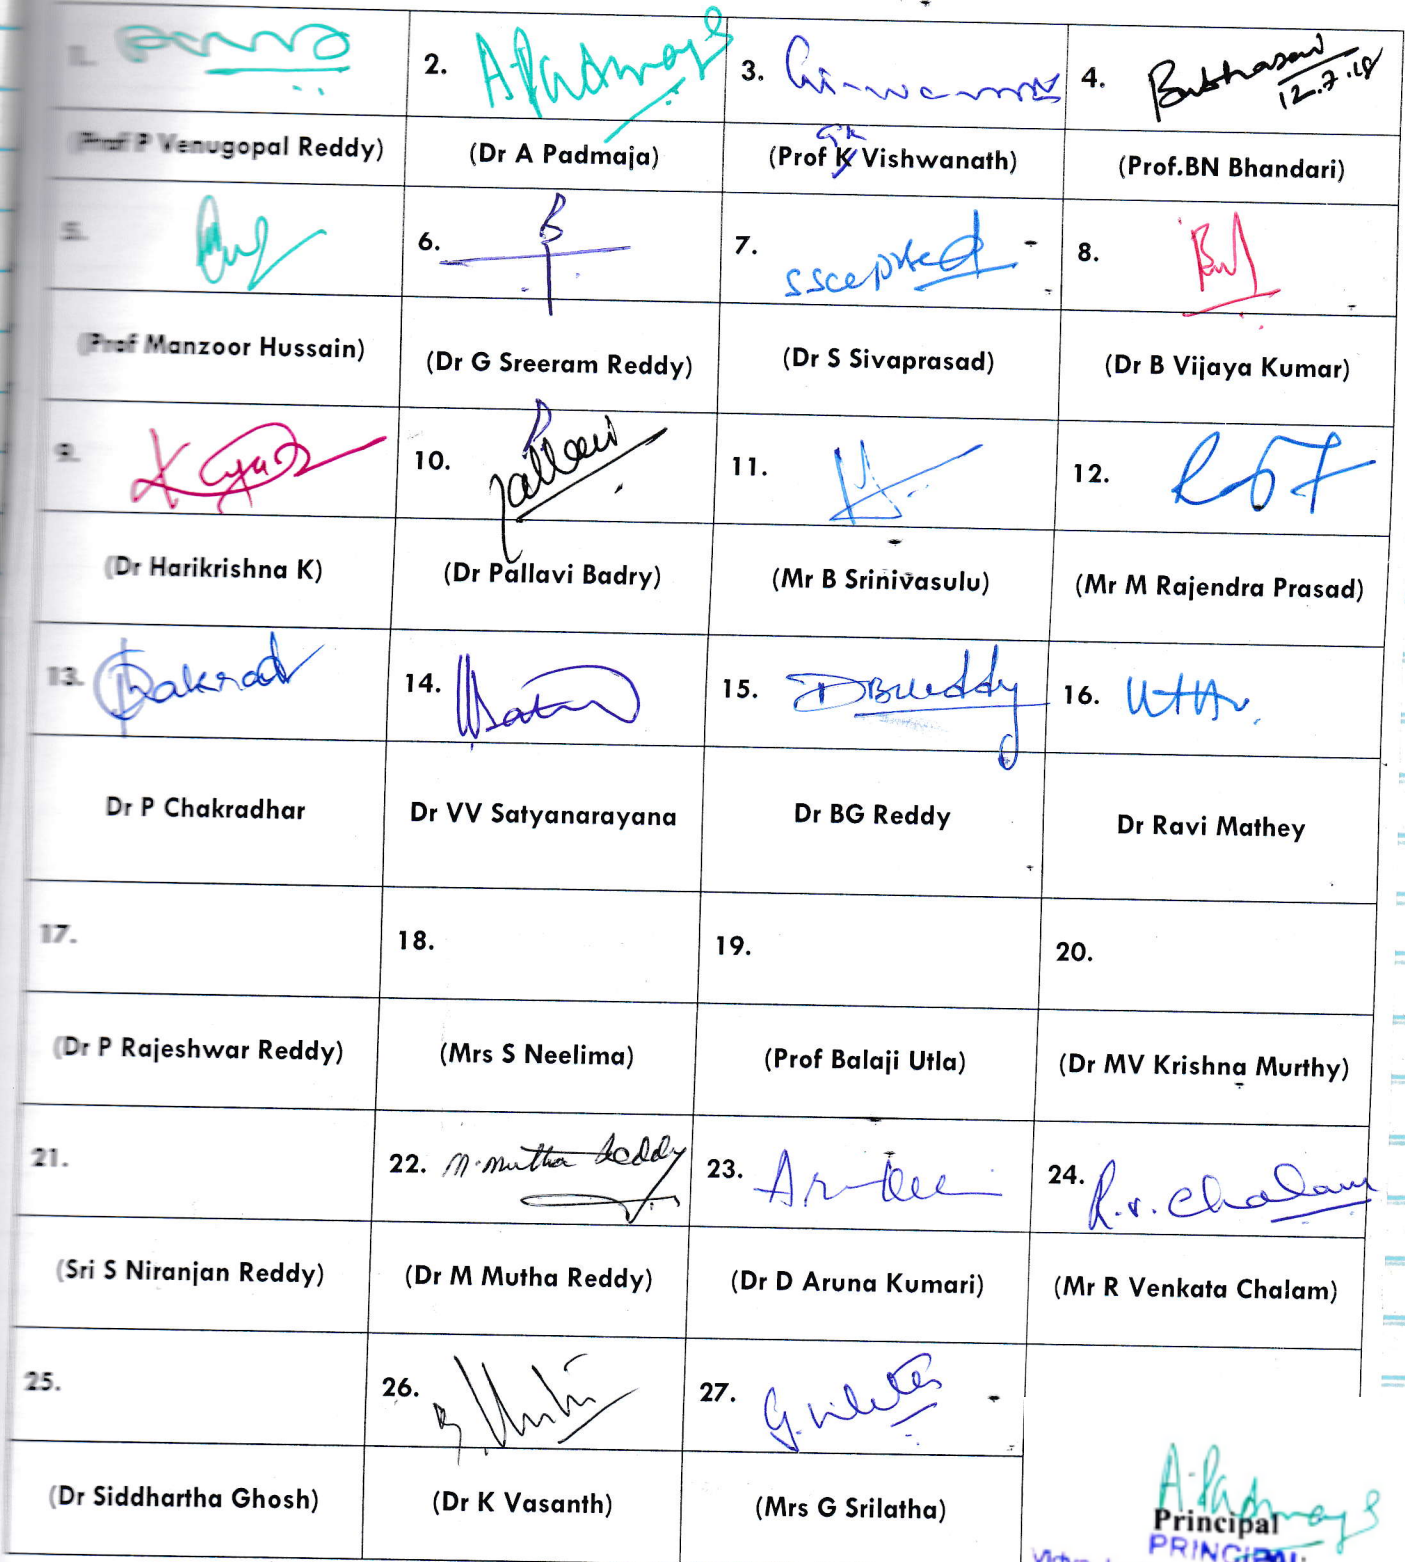 1. 2. A. Padmaja 3. 4. Bubhasani 12.7.18
GK
(Prof P Venugopal Reddy) (Dr A Padmaja) (Prof K Vishwanath) (Prof.BN Bhandari)
5. 6. 7. 8.
(Prof Manzoor Hussain) (Dr G Sreeram Reddy) (Dr S Sivaprasad) (Dr B Vijaya Kumar)
9. 10. Pallavi 11. 12.
(Dr Harikrishna K) (Dr Pallavi Badry) (Mr B Srinivasulu) (Mr M Rajendra Prasad)
13. 14. 15. 16.
Dr P Chakradhar Dr VV Satyanarayana Dr BG Reddy Dr Ravi Mathey
17. 18. 19. 20.
(Dr P Rajeshwar Reddy) (Mrs S Neelima) (Prof Balaji Utla) (Dr MV Krishna Murthy)
21. 22. M. Mutha Reddy 23. 24. R.V. Chalam
(Sri S Niranjan Reddy) (Dr M Mutha Reddy) (Dr D Aruna Kumari) (Mr R Venkata Chalam)
25. 26. 27.
(Dr Siddhartha Ghosh) (Dr K Vasanth) (Mrs G Srilatha)
A. Padmaja
Principal
PRINCIPAL